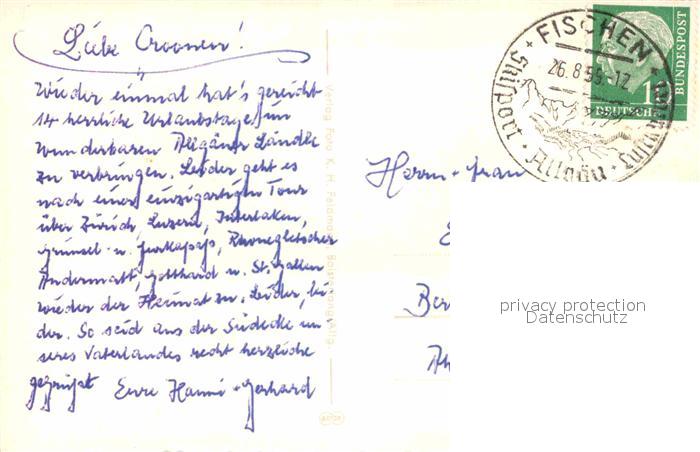 Liebe Croonen!
Wieder einmal hat's gereicht
14 herrliche Urlaubstage im
wunderbaren Allgäuer Ländle
zu verbringen. Leider geht es
nach einer einzigartigen Tour
über Zürich, Luzern, Interlaken,
Grimsel- u. Furkapaß, Rhonegletscher
Andermatt, Gotthard u. St. Gallen
wieder der Heimat zu. Leider, lei-
der. So seid aus der Südecke un-
seres Vaterlandes recht herzliche
gegrüßt Eure Hanni + Gerhard
Verlag Foto K. H.
FISCHEN
26.8.56-12
Skisport
Allgäu
DEUTSCHE
BUNDESPOST
Herrn + Frau
Ber
Rh
privacy protection
Datenschutz